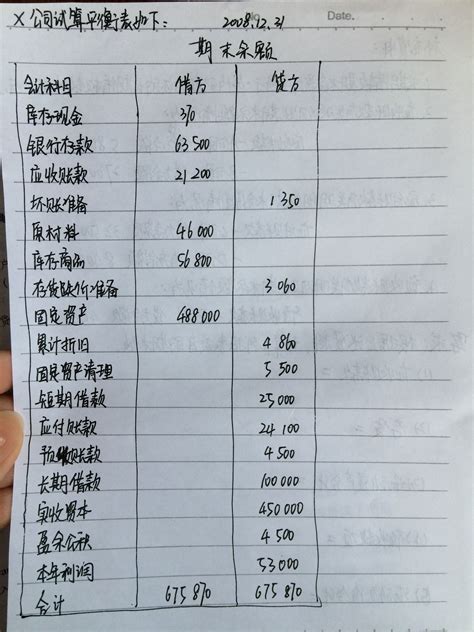 Date.
X公司试算平衡表如下: 2008.12.31
期末余额
会计科目 借方 贷方
库存现金 370
银行存款 63 500
应收账款 21 200
坏账准备 1 350
原材料 46 000
库存商品 56 800
存货跌价准备 3 060
固定资产 488 000
累计折旧 4 860
固定资产清理 5 500
短期借款 25 000
应付账款 24 100
预账款 4 500
长期借款 100 000
实收资本 450 000
盈余公积 4 500
本年利润 53 000
合计 675 870 675 870